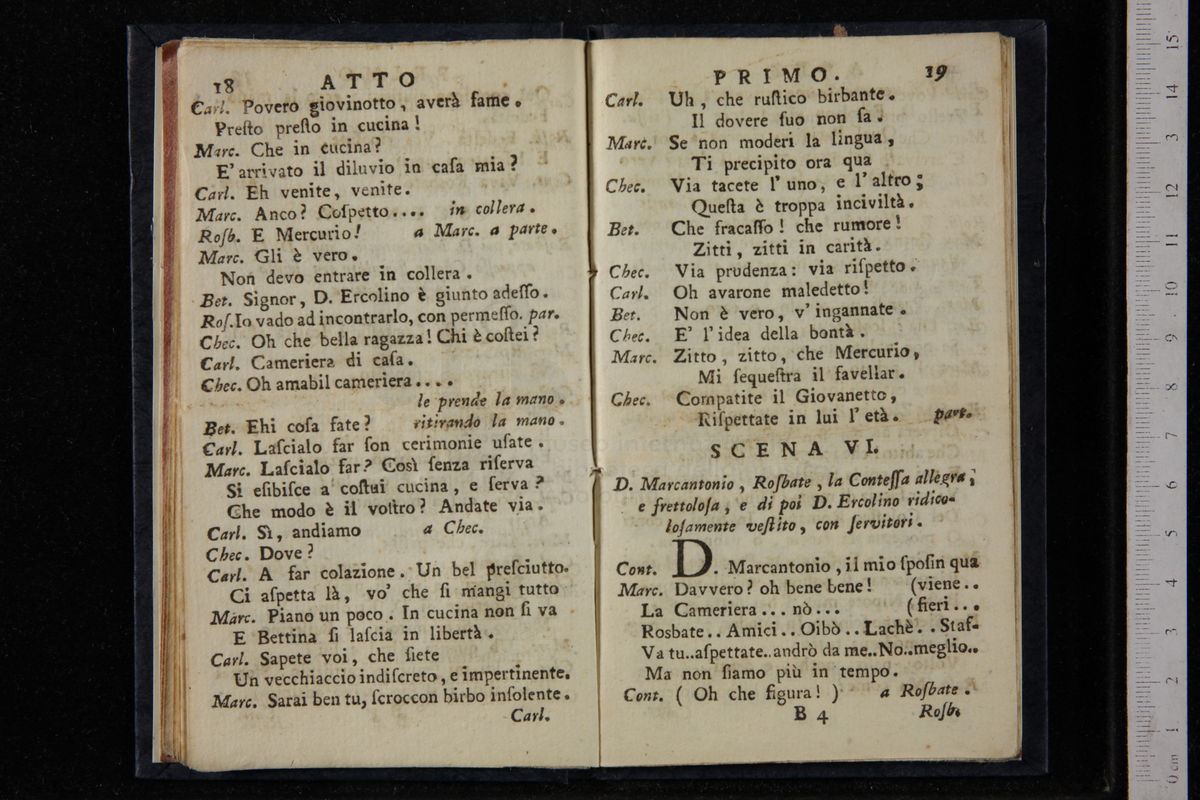 18 ATTO
Carl. Povero giovinotto, averà fame.
Preſto preſto in cucina!
Marc. Che in cucina?
E' arrivato il diluvio in caſa mia?
Carl. Eh venite, venite.
Marc. Anco? Coſpetto.... in collera.
Roſb. E Mercurio! a Marc. a parte.
Marc. Gli è vero.
Non devo entrare in collera.
Bet. Signor, D. Ercolino è giunto adeſſo.
Roſ. Io vado ad incontrarlo, con permeſſo. par.
Chec. Oh che bella ragazza! Chi è coſtei?
Carl. Cameriera di caſa.
Chec. Oh amabil cameriera....
le prende la mano.
Bet. Ehi coſa fate? ritirando la mano.
Carl. Laſcialo far ſon cerimonie uſate.
Marc. Laſcialo far? Così ſenza riſerva
Si eſibiſce a coſtui cucina, e ſerva?
Che modo è il voſtro? Andate via.
Carl. Sì, andiamo a Chec.
Chec. Dove?
Carl. A far colazione. Un bel preſciutto.
Ci aſpetta là, vo' che ſi mangi tutto
Marc. Piano un poco. In cucina non ſi va
E Bettina ſi laſcia in libertà.
Carl. Sapete voi, che ſiete
Un vecchiaccio indiſcreto, e impertinente.
Marc. Sarai ben tu, ſcroccon birbo inſolente.
Carl.
PRIMO. 19
Carl. Uh, che ruſtico birbante.
Il dovere ſuo non ſa.
Marc. Se non moderi la lingua,
Ti precipito ora qua
Chec. Via tacete l' uno, e l' altro;
Queſta è troppa inciviltà.
Bet. Che fracaſſo! che rumore!
Zitti, zitti in carità.
Chec. Via prudenza: via riſpetto.
Carl. Oh avarone maledetto!
Bet. Non è vero, v' ingannate.
Chec. E' l' idea della bontà.
Marc. Zitto, zitto, che Mercurio,
Mi ſequeſtra il favellar.
Chec. Compatite il Giovanetto,
Riſpettate in lui l' età. part.
SCENA VI.
D. Marcantonio, Roſbate, la Conteſſa allegra,
e frettoloſa, e di poi D. Ercolino ridico-
loſamente veſtito, con ſervitori.
Cont. D. Marcantonio, il mio ſpoſin qua
Marc. Davvero? oh bene bene! (viene..
La Cameriera... nò... (fieri...
Rosbate.. Amici.. Oibò.. Lachè.. Staf-
Va tu..aſpettate..andrò da me..No..meglio..
Ma non ſiamo più in tempo.
Cont. ( Oh che figura! ) a Roſbate.
B 4 Roſb.